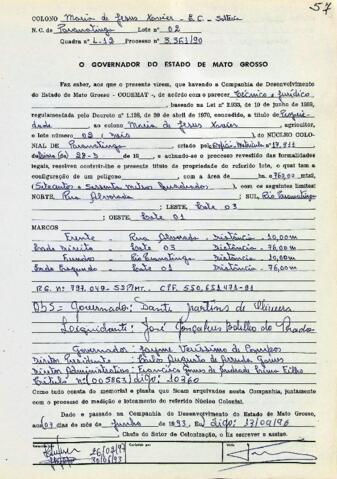 57
COLONO Maria de Jesus Xavier - E.C. - Solteira
N. C. de Paranatinga Lote nº 02
Quadra nº L-12 Processo nº 3.361/90
O GOVERNADOR DO ESTADO DE MATO GROSSO
Faz saber, aos que o presente virem, que havendo a Companhia de Desenvolvimento
do Estado de Mato Grosso - CODEMAT -, de acordo com o parecer Técnico e Jurídico
, baseado na Lei nº
regulamentada pelo Decreto nº 1.138, de 29 de abril de 1970, concedido, a título de Propri-
edade ao colono Maria de Jesus Xavier, agricultor,
o lote número 02, do NÚCLEO COLO-
NIAL DE Paranatinga
, achando-se o processo revestido das formalidades
legais, resolvem conferir-lhe o presente título de propriedade do referido lote, o qual tem a
configuração de um polígono com a área de 760,00
(Setecentos e Sessenta metros quadrados), com os seguintes limites:
NORTE, Rua Alvorada ; SUL, Rio Paranatinga
; LESTE, Lote 03
; OESTE, Lote 01
MARCOS
Frente - Rua Alvorada - Distância - 10,00m
Lado Direito - Lote 03 - Distância - 76,00m
Fundos - Rio Paranatinga - Distância - 10,00m
Lado Esquerdo - Lote 01 - Distância - 76,00m
R.G. nº
OBS = Governador: Dante Martins de Oliveira
Liquidante: José Gonçalves Botelho do Prado
Governador: Jayme Veríssimo de Campos
Diretor Presidente: Paulo Augusto
Diretor Administrativo: Francisco Gomes de Andrade Lima Filho
Título nº 005863
Como tudo consta do memorial e planta que ficam arquivados nesta Companhia, juntamente
com o processo de medição e loteamento do referido Núcleo Colonial.
Dado e passado na Companhia de Desenvolvimento do Estado de Mato Grosso,
aos 07 dias do mês de Junho 1993
Chefe do Setor de Colonização, o fiz escrever e assino.